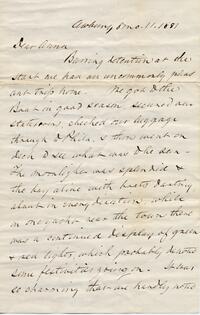 8 mo. 11. 1881
Dear Anna
Barring detention at the
start we had an uncommonly pleas
ant trip home. We got to the
Boat in good season secured our
stateroom, checked our luggage
through to Phila, & then went on
deck to see what was to be seen.
The moonlight was splendid &
the bay alive with boats darting
about in every direction, while
on one yacht near the town there
was a continued display of green
& red lights, which probably denoted
some festivities going on. It was
so charming that we hardly